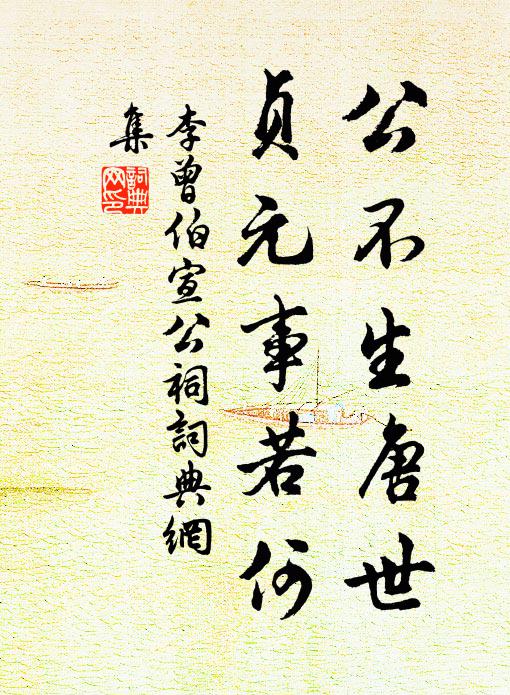 公不生唐世
貞元事若何
李曾伯宣公祠詞典網
集
詞典
网印